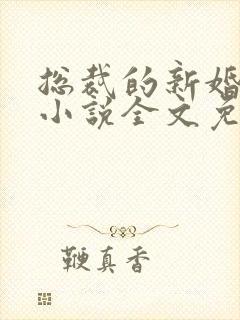 总裁的新婚
小说全文免
鞭真香